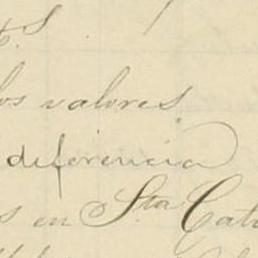 los valores.
diferencia
en Sta Cat